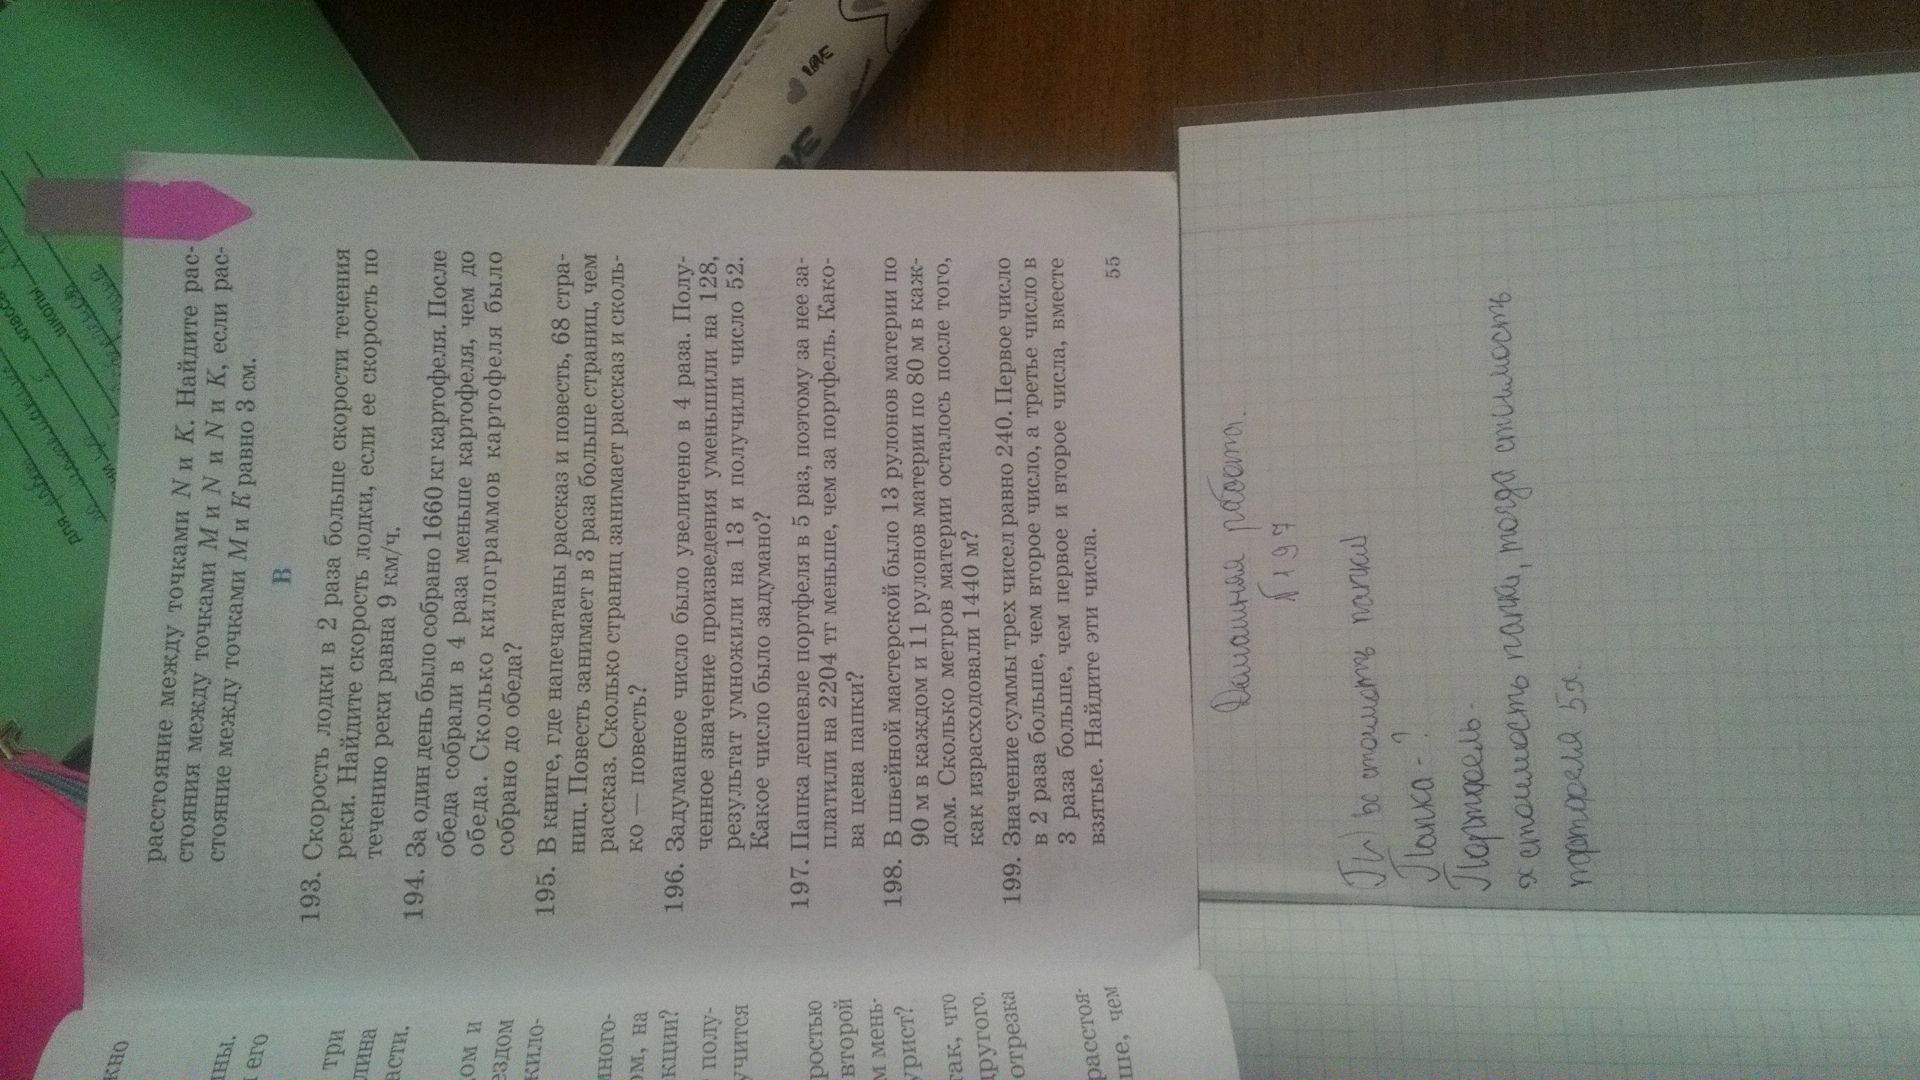 расстояние между точками N и K. Найдите рас-
стояния между точками M и N и N и K, если рас-
стояние между точками M и K равно 3 см.
В
193. Скорость лодки в 2 раза больше скорости течения
реки. Найдите скорость лодки, если ее скорость по
течению реки равна 9 км/ч.
194. За один день было собрано 1660 кг картофеля. После
обеда собрали в 4 раза меньше картофеля, чем до
обеда. Сколько килограммов картофеля было
собрано до обеда?
195. В книге, где напечатаны рассказ и повесть, 68 стра-
ниц. Повесть занимает в 3 раза больше страниц, чем
рассказ. Сколько страниц занимает рассказ и сколь-
ко — повесть?
196. Задуманное число было увеличено в 4 раза. Полу-
ченное значение произведения уменьшили на 128,
результат умножили на 13 и получили число 52.
Какое число было задумано?
197. Папка дешевле портфеля в 5 раз, поэтому за нее за-
платили на 2204 тг меньше, чем за портфель. Како-
ва цена папки?
198. В швейной мастерской было 13 рулонов материи по
90 м в каждом и 11 рулонов материи по 80 м в каж-
дом. Сколько метров материи осталось после того,
как израсходовали 1440 м?
199. Значение суммы трех чисел равно 240. Первое число
в 2 раза больше, чем второе число, а третье число в
3 раза больше, чем первое и второе числа, вместе
взятые. Найдите эти числа.
55
кно
ны.
его
три
лина
асти.
ом и
ездом
кило-
много-
ом, на
кции?
полу-
учится
ростью
второй
м мень-
урист?
так, что
другого.
отрезка
расстоя-
ше, чем
Домашняя работа.
№197
х стоимость папки
Папка - ?
Портфель -
х стоимость папки, тогда стоимость
портфеля 5х.
LOVE
для
класса
школы